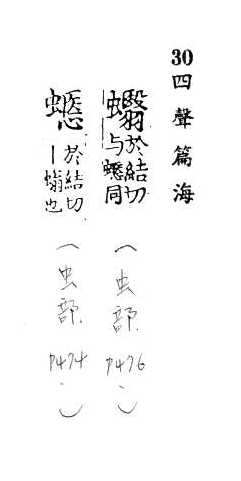 30 四聲篇海
於結切
与同
(虫部 P476.)
於結切
丨螉也
(虫部 P474.)